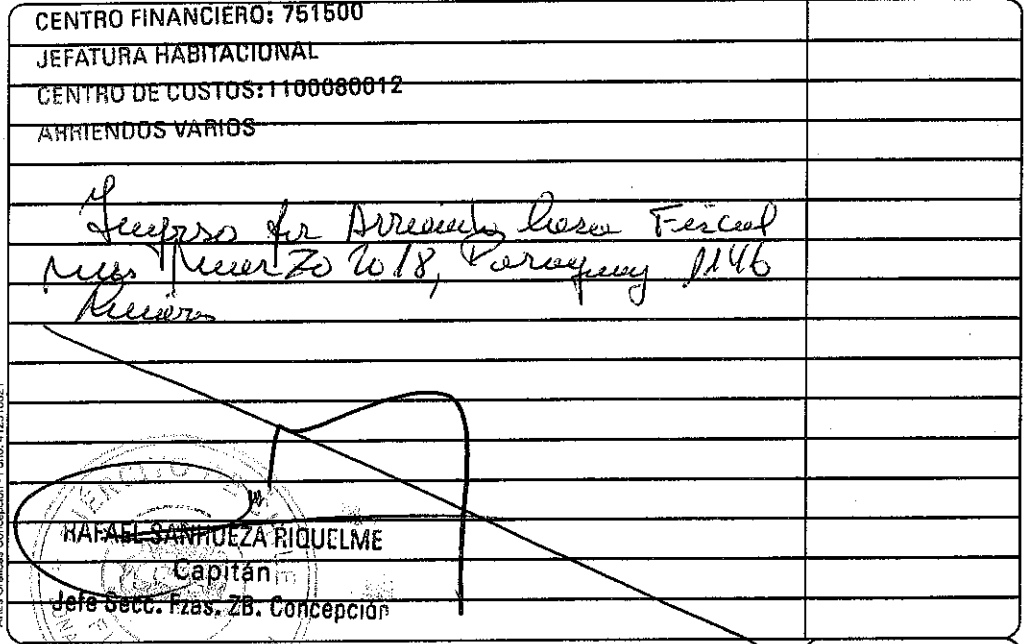 CENTRO FINANCIERO: 751500
JEFATURA HABITACIONAL
CENTRO DE COSTOS: 1100080012
ARRIENDOS VARIOS
Ingreso por Arriendo Casa Fiscal
mes Marzo 2018, Paraguay 1146
RAFAEL SANHUEZA RIQUELME
Capitán
Jefe Secc. Fzas. ZB. Concepción